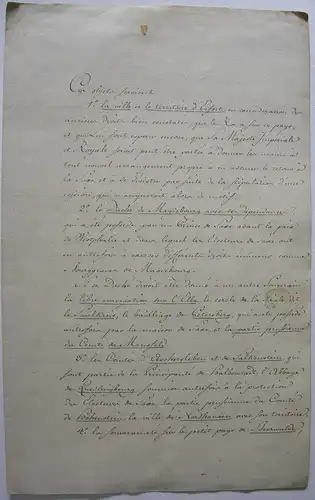 Ces objets seroient
1° la ville et le territoire d'Erfort en considération des
anciens droits bien constatés que la Saxe a sur ce pays,
et qui lui sont encore, que Sa Majesté Impériale
et Royale soient peut être portée à donner les mains à
tout nouvel arrangement propre à en assurer le retour à
la Saxe et à de par suite de la stipulation d'une
cession, qui alors de motif.
2° le Duché de Magdebourg avec ses dépendances
qui a été possédé par un Prince de Saxe avant la paix
de Westphalie et dans lequel les Electeurs de Saxe ont
eu autrefois à exercer différents droits comme
Bourggraves de Magdebourg.
si ce Duché devoit être donné à un autre Souverain
la libre navigation sur l'Elbe, le cercle de la Saale dit
le Saalkreis, le bailliage de qui a été possédé
autrefois par la maison de Saxe et la partie prussienne
du Comté de Mansfeld.
3° les Comtés d'Aschersleben et de qui
font partie de la Principauté de Halberstadt, l'Abbaye
de Quedlinbourg soumise autrefois à la protection
des Electeurs de Saxe, la partie prussienne du Comté
de Hohnstein, la ville de Nordhausen avec son territoire
4° la souveraineté sur le petit pays de